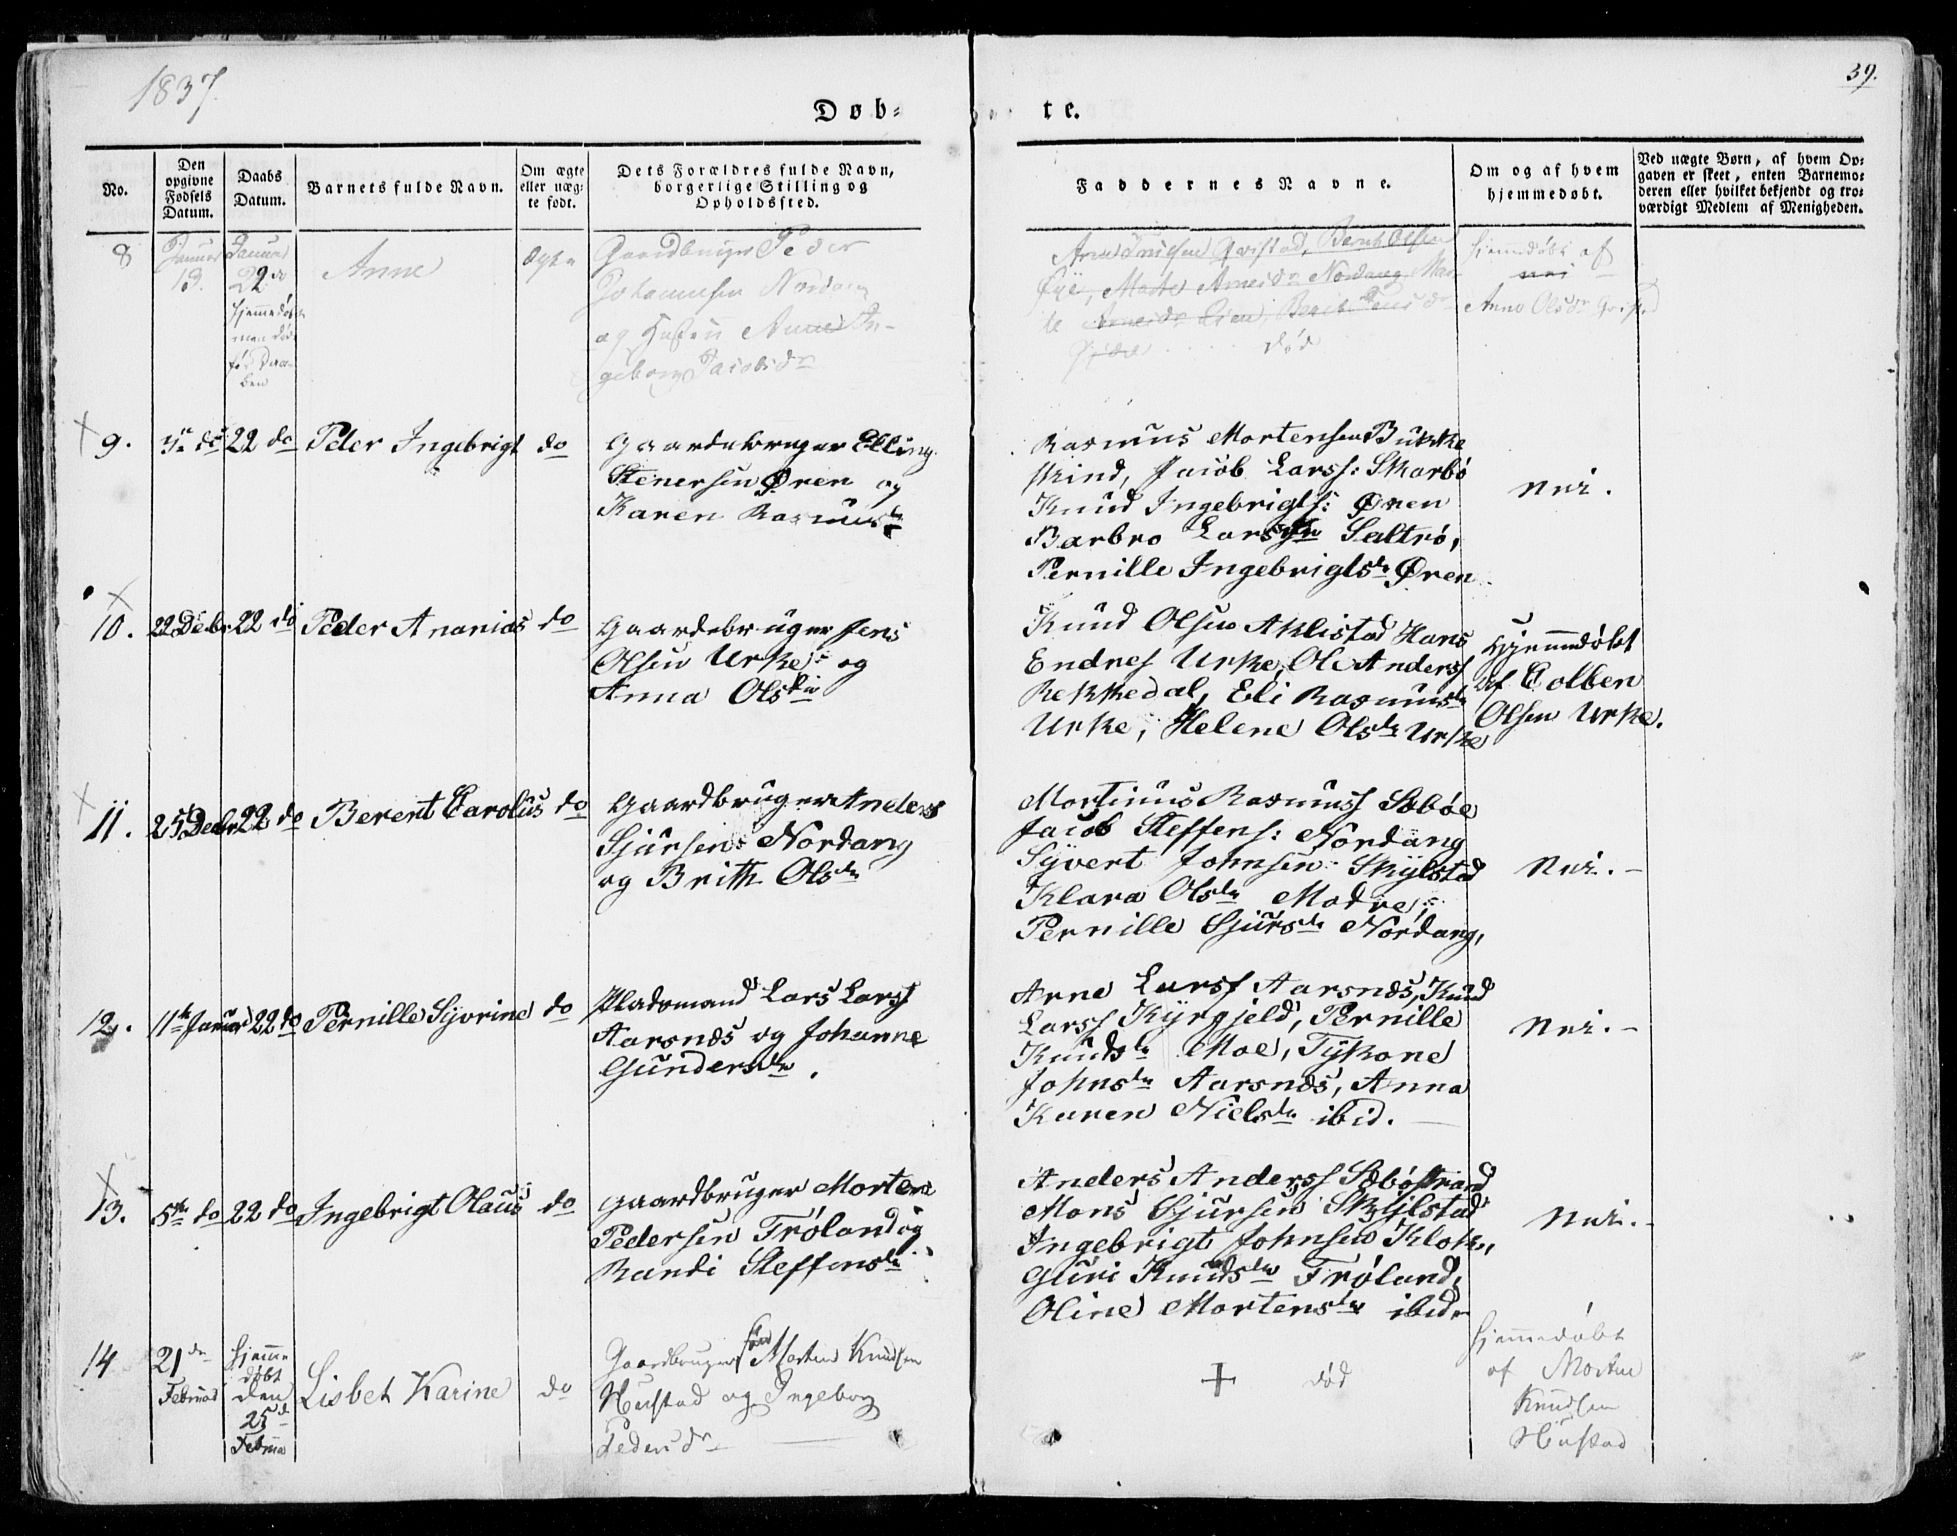 1837.
39.
Døb-
te.
No.
Den opgivne Fødsels Datum.
Daabs Datum.
Barnets fulde Navn.
Om ægte eller uægte født.
Dets Forældres fulde Navn, borgerlige Stilling og Opholdssted.
Faddernes Navne.
Om og af hvem hjemmedøbt.
Ved uægte Børn, af hvem Opgaven er skeet, enten Barnemoderen eller hvilket bekjendt og troværdigt Medlem af Menigheden.
8
Januar
19.
Januar
22 de
hjemmedøbt
men død
før Daa-
ben
Anne
ægte
Gaardbruger Peder
Johannesen Nordang
og Hustru Anne In-
geborg Jacobsdr
Qvistad, Bernt Olsen
Øye, Marte Arnesdr Nordang, Mar-
te
død
hjemmedøbt af
nei
Anne Olsdr Qvistad
9.
22 do
Peder Ingebrigt
do
Gaardebruger Elling
Stenersen Øren og
Karen Rasmusdr
Rasmus Mortensen Bukke
skind, Jacob Larss: Skarbø
Knud Ingebrigts: Øren
Barbro Larsdtr Saltrø,
Pernille Ingebrigtsdr Øren
Nei.
10.
22 Debr
22 do
Peder Ananias
do
Gaardebruger Jens
Olsen Urke og
Anna Olsdtr
Knud Olsen Aklistad Hans
Endres Urke, Ole Anderss
Rekkedal, Eli Rasmusdr
Urke, Helene Olsdr Urke
Hjemmedøbt
af Colben
Olsen Urke.
11.
25 Debr
22 do
Berent Carolus
do
Gaardbruger Anders
Sjursen Nordang
og Brith Olsdr
Martinus Rasmuss Sæbøe
Jacob Steffens: Nordang
Syvert Johnsen Skylstad
Klara Olsdr Modre,
Pernille Sjursdr Nordang,
Nei. -
12.
11te Januar
22 do
Pernille Syvrine
do
Pladsmand Lars Larss
Aarsnæs og Johanne
Gundersdr.
Arne Larss Aarsnæs, Knud
Larss Kyrgjeld, Pernille
Knudsdr Moe, Tykone
Johnsdr Aarsnæs, Anna
Karen Nielsdr ibid.
Nei. -
13.
5te do
22 do
Ingebrigt Olaus
do
Gaardbruger Morten
Pedersen Trøland og
Randi Steffensdr
Anders Anderss Sæbøstrand
Mons Sjursen Skylstad
Ingebrigt Johnsen Klok,
Guri Knudsdr Trøland,
Oline Mortensdr ibid.
Nei. -
14
21de
Februar
hjemme
døbt
den
25de
Februar
Lisbet Karine
do
Gaardbruger Morten Knudsen
Hustad og Ingeborg
Pedersdr
+ død
hjemmedøbt
af Morten
Knudsen
Hustad